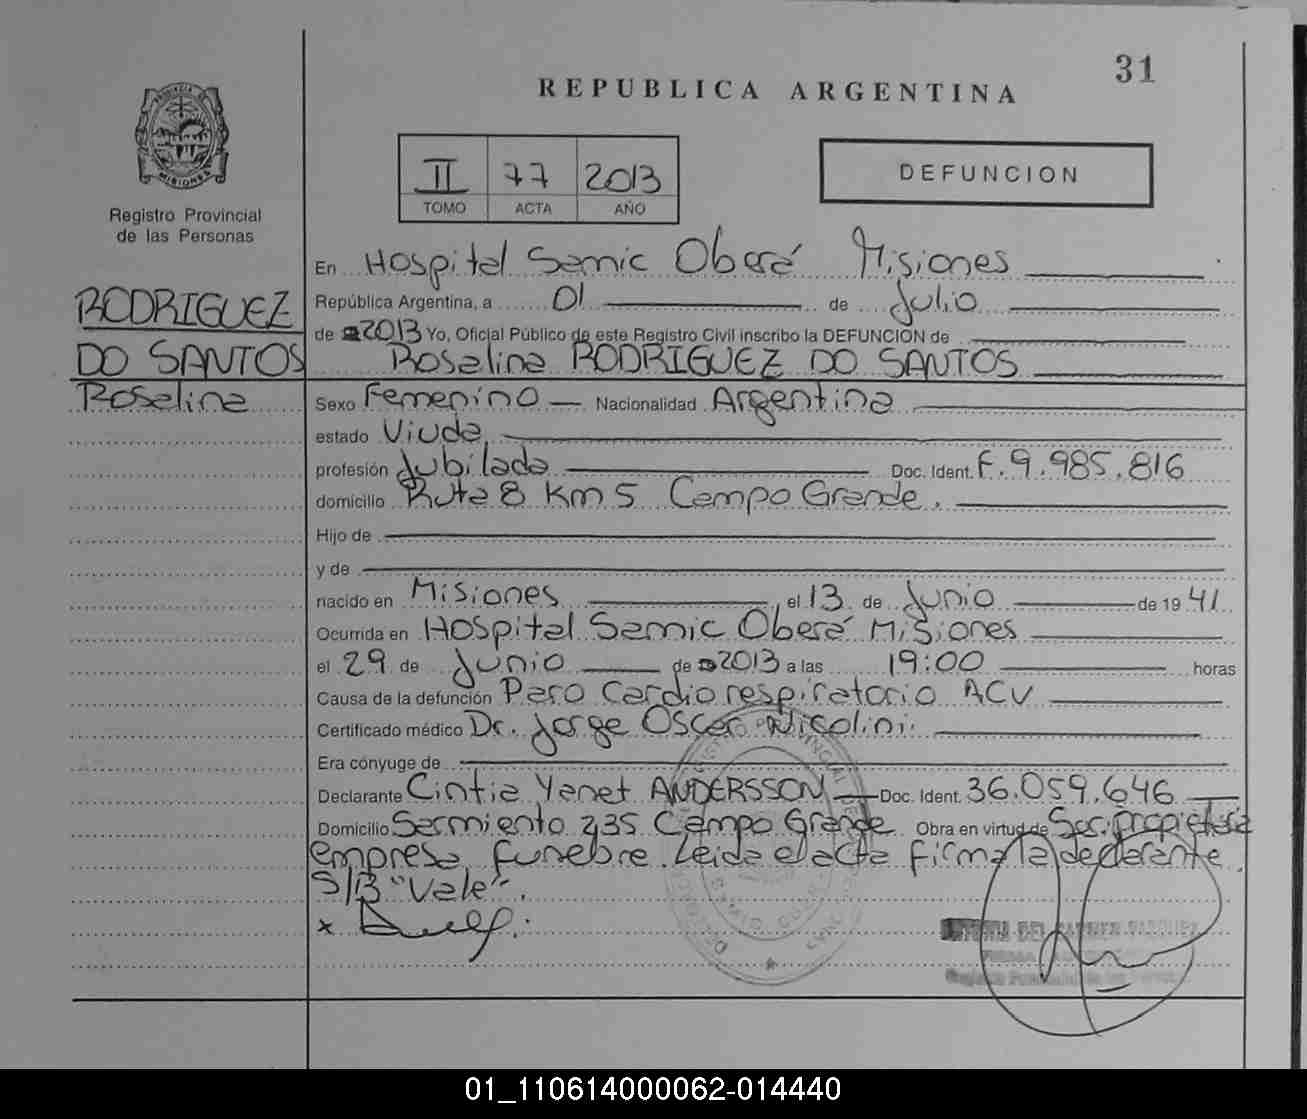 31
REPUBLICA ARGENTINA
II 77 2013
TOMO ACTA AÑO
DEFUNCION
PROVINCIA DE MISIONES
Registro Provincial
de las Personas
RODRIGUEZ
DO SANTOS
Roselina
En Hospital Samic Oberá Misiones
República Argentina, a 01 de Julio
de 2013 Yo, Oficial Público de este Registro Civil inscribo la DEFUNCION de
Roselina RODRIGUEZ DO SANTOS
Sexo Femenino Nacionalidad Argentina
estado Viuda
profesión Jubilada Doc. Ident. F. 9.985.816
domicilio Ruta 8 Km 5 Campo Grande.
Hijo de
y de
nacido en Misiones el 13 de Junio de 19 41
Ocurrida en Hospital Samic Oberá Misiones
el 29 de Junio de 2013 a las 19:00 horas
Causa de la defunción Paro Cardiorespiratorio ACV
Certificado médico Dr. Jorge Oscar Nicolini.
Era cónyuge de
Declarante Cintia Yanet ANDERSSON Doc. Ident. 36.059.646
Domicilio Sarmiento 235 Campo Grande Obra en virtud de Ser propietaria
empresa funebre. Leida el acta firma la declarante
S/B "Vale".
x
01_110614000062-014440